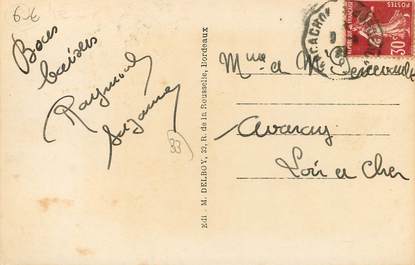 6-6
Bons
baisers
Raymond
Suzanne
33
Edi M. DELBOY, 33, R. de la Rousselle, Bordeaux
ARCACHON
POSTES
30c
Mme et M
Avaray
Loir et Cher